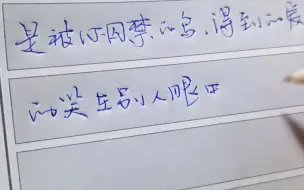 是被你囚禁的鸟，得到的爱
的笑在别人眼中